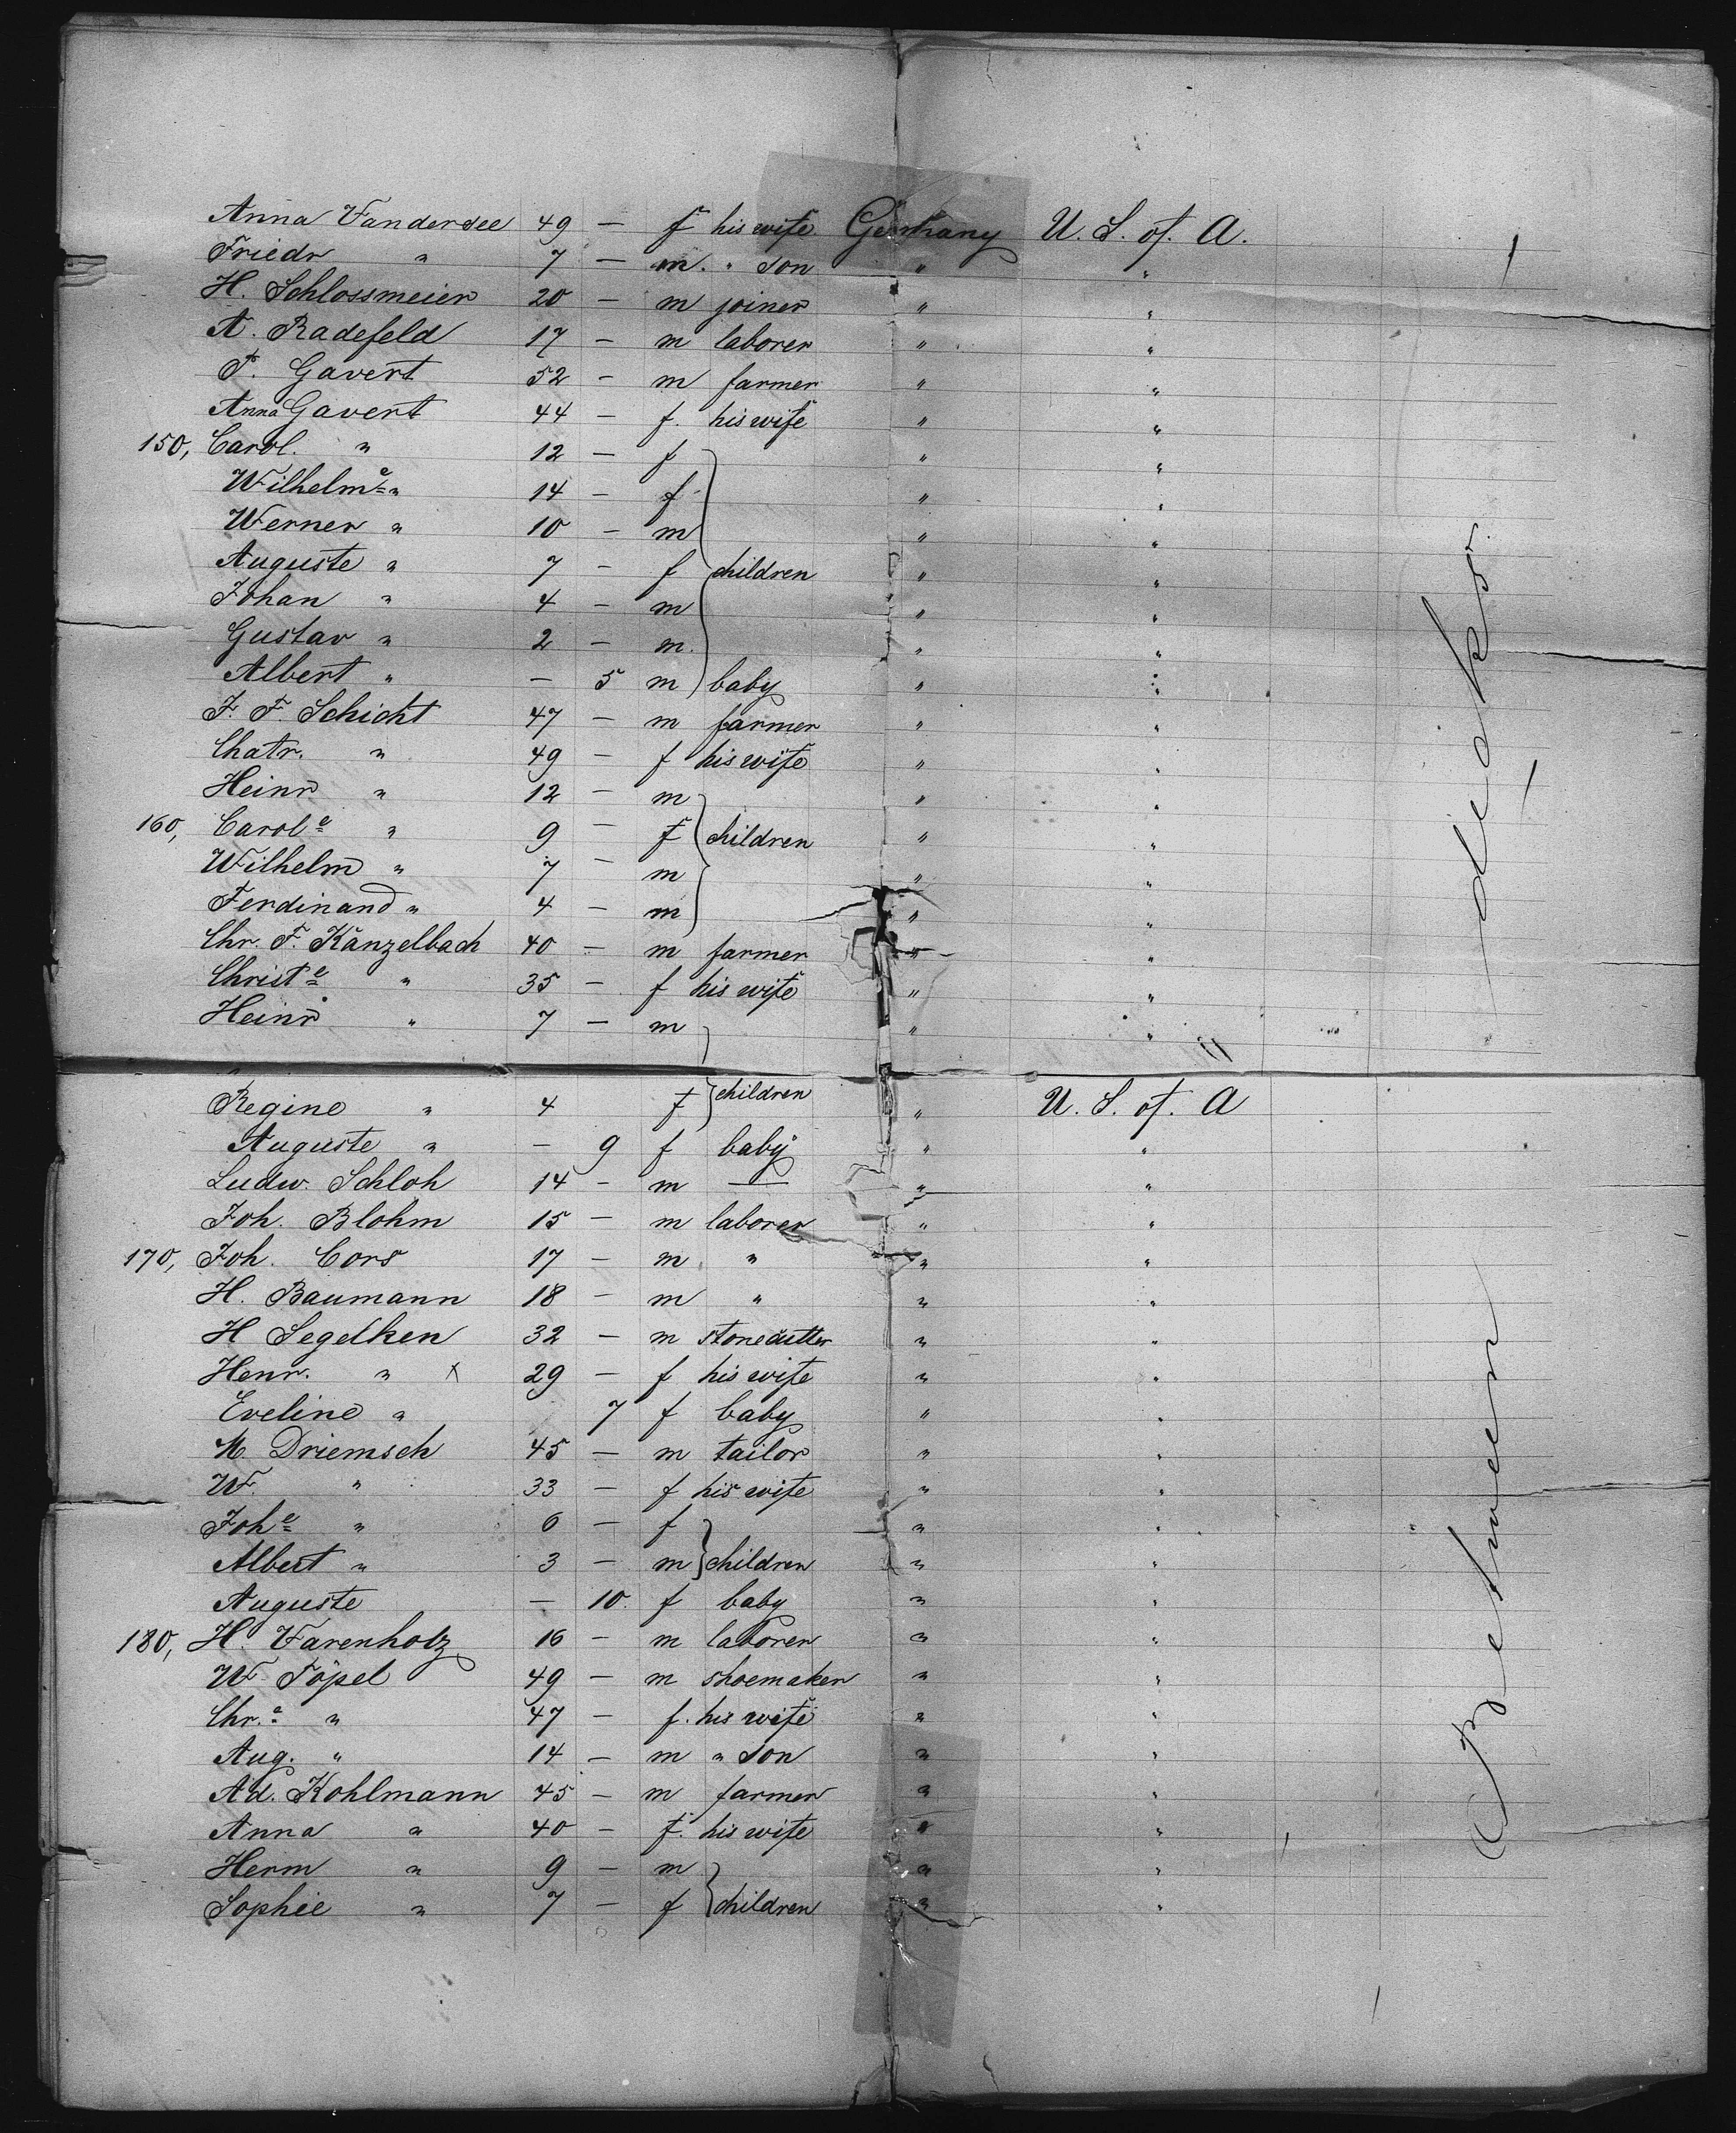 Anna Vandersee 49 — f his wife Germany U. S. of. A.
Friedr " 7 — m. " son " "
H. Schlossmeier 20 — m joiner " "
A. Radefeld 17 — m laborer " "
F. Gavert 52 — m farmer " "
Anna Gavert 44 — f. his wife " "
150, Carol. " 12 — f " "
Wilhelmᵉ " 14 — f " "
Werner " 10 — m " "
Auguste " 7 — f children " "
Johan " 4 — m " "
Gustav " 2 — m. " "
Albert " — 5 m baby " "
J. F. Schicht 47 — m farmer " "
Chatr. " 49 — f his wife " "
Heinr " 12 — m " "
160, Carolᵉ " 9 — f children " "
Wilhelm " 7 — m " "
Ferdinand " 4 — m " "
Chr. F. Känzelbach 40 — m farmer " "
Christᵉ " 35 — f his wife " "
Heinr " 7 — m " "
Regine " 4 f children " U. S. of. A
Auguste " — 9 f baby " "
Ludw. Schloh 14 — m — " "
Joh. Blohm 15 — m laborer " "
170, Joh. Cors 17 — m " " "
H. Baumann 18 — m " " "
H Segelken 32 — m stonecutter " "
Henr. " x 29 — f his wife " "
Eveline " 7 f baby " "
M. Driemsch 45 — m tailor " "
W. " 33 — f his wife " "
Johᵉ " 6 — f " "
Albert " 3 — m children " "
Auguste — 10. f baby " "
180, H. Varenholz 16 — m laborer " "
W. Töpel 49 — m shoemaker " "
Chr.ᵉ " 47 — f. his wife " "
Aug. " 14 — m " son " "
Ad. Kohlmann 45 — m farmer " "
Anna " 40 — f. his wife " "
Herm " 9 — m " "
Sophie " 7 — f children " "
Between decks.